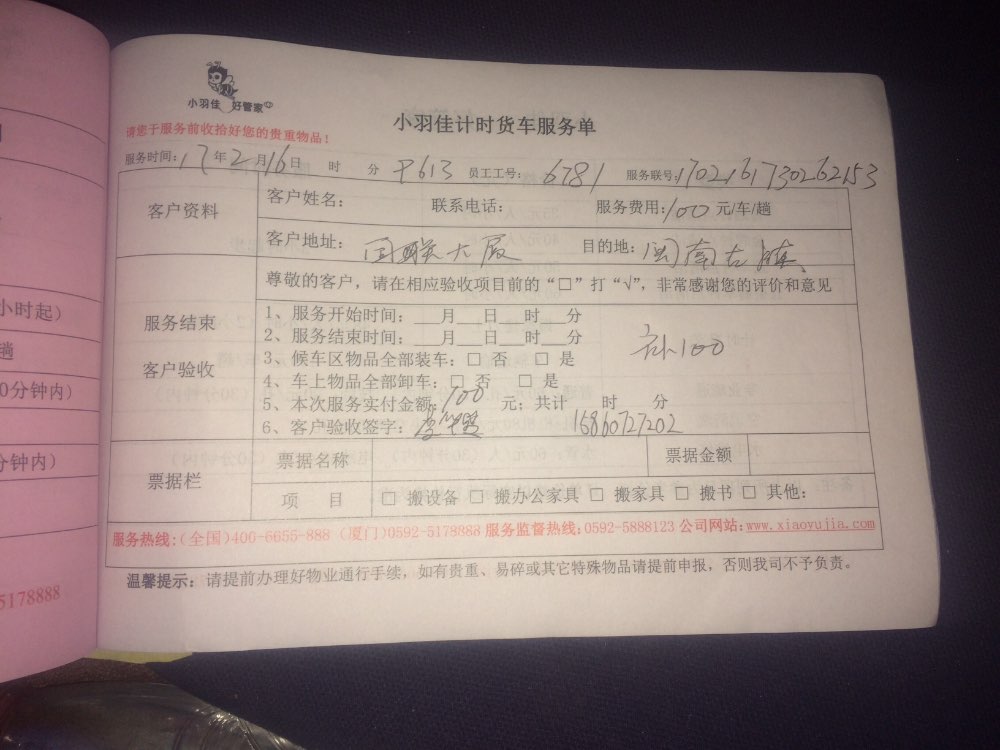 小羽佳 好管家
小羽佳计时货车服务单
请您于服务前收拾好您的贵重物品！
服务时间：17年2月16日 时 分 P613 员工工号：6781 服务联号：1702161730262153
客户资料
客户姓名： 联系电话： 服务费用：100元/车/趟
客户地址：国联大厦 目的地：闽南古镇
尊敬的客户，请在相应验收项目前的“□”打“√”，非常感谢您的评价和意见
服务结束
客户验收
1、服务开始时间：___月___日___时___分
2、服务结束时间：___月___日___时___分
3、候车区物品全部装车：□ 否 □ 是
4、车上物品全部卸车：□ 否 □ 是
5、本次服务实付金额：100 元；共计 时 分
6、客户验收签字： 15860727202
补100
票据栏
票据名称 票据金额
项 目 □ 搬设备 □ 搬办公家具 □ 搬家具 □ 搬书 □ 其他：
服务热线：(全国)400-6655-888 (厦门)0592-5178888 服务监督热线：0592-5888123 公司网站：www.xiaoyujia.com
温馨提示：请提前办理好物业通行手续，如有贵重、易碎或其它特殊物品请提前申报，否则我司不予负责。
小时起）
趟
0分钟内）
分钟内）
5178888